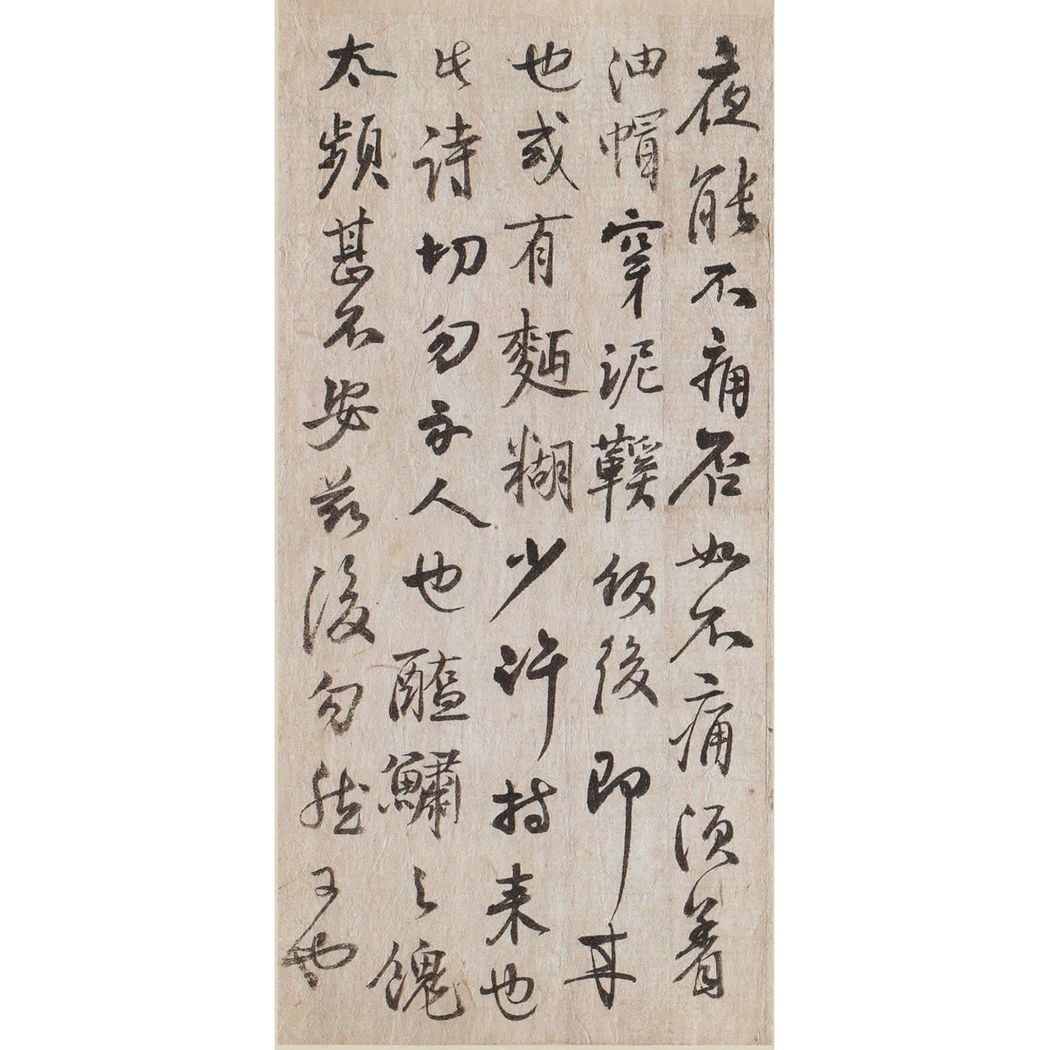 夜能不痛否如不痛須着
油帽穿泥鞵飯後即来
也或有麵糊少許持来也
此詩切勿示人也醢鱐之餽
太頻甚不安茲後勿然可也